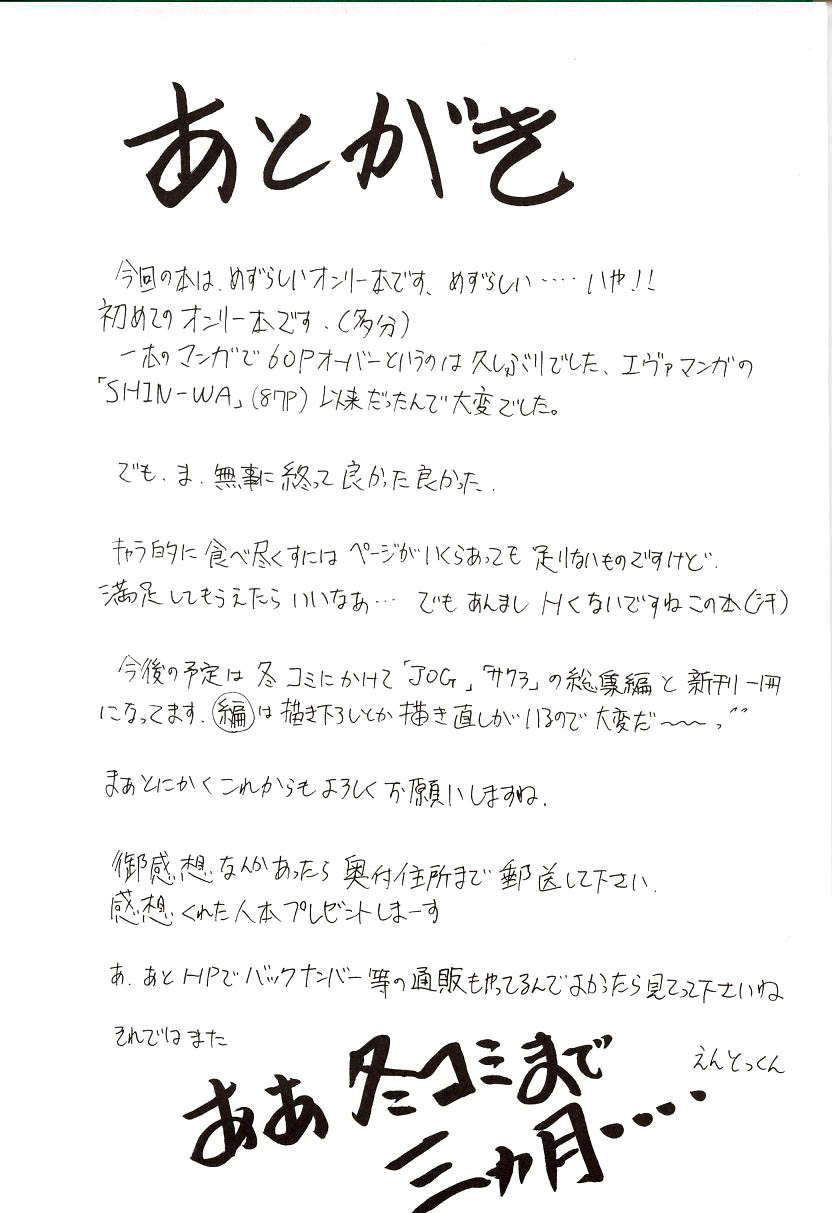 あとがき
今回の本は、めずらしいオンリー本です、めずらしい‥‥いや!!
初めてのオンリー本です.(多分)
一本のマンガで60Pオーバーというのは久しぶりでした、エヴァマンガの
「SHIN-WA」(87P)以来だったんで大変でした。
でも.ま.無事に終って良かった良かった.
キャラ的に食べ尽くすにはページがいくらあっても足りないものですけど.
満足してもらえたらいいなあ… でもあんましHくないですねこの本(汗)
今後の予定は冬コミにかけて「JOG」「サクラ」の総集編と新刊一冊
になってます.編は描き下ろしとか描き直しがいるので大変だ〜〜っ
まあとにかくこれからもよろしくお願いしますね.
御感想なんかあったら奥付住所まで郵送して下さい.
感想くれた人本プレゼントしまーす
あ.あとHPでバックナンバー等の通販もやってるんでよかったら見てって下さいね
それではまた
えんとっくん
ああ冬コミまで
三ヵ月‥‥